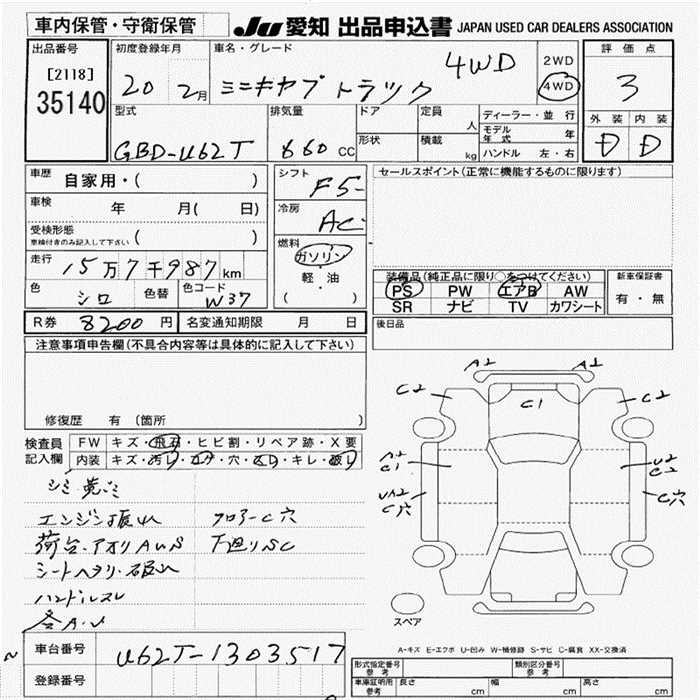 車内保管・守衛保管 JU 愛知 出品申込書 JAPAN USED CAR DEALERS ASSOCIATION
出品番号 初度登録年月 車名・グレード 2WD 評価点
[2118] 4WD 4WD
35140 20 2月 ミニキヤブ トラック 3
型式 排気量 ドア 定員 人 ディーラー・並行 外装 内装
GBD-U62T 660 CC 形状 積載 kg モデル年式 年 D D
ハンドル 左・右
車歴 自家用・( ) シフト F5 セールスポイント(正常に機能するものに限ります)
車検 年 月( 日) 冷房 AC
受検形態 ( ) 燃料
車検付きのみ記入して下さい ガソリン
走行 15万7千987km 軽・油 装備品(純正品に限り○をつけてください) 新車保証書
色 シロ 色替 色コード W37 ( ) PS PW エアB AW 有・無
SR ナビ TV カワシート
R券 8200円 名変通知期限 月 日 後日品
注意事項申告欄(不具合内容等は具体的に記入して下さい)
A2 A1
C2 C1 C2
修復歴 有(箇所 )
検査員 FW キズ・飛石・ヒビ割・リペア跡・X要
記入欄 内装 キズ・汚レ・コゲ・穴・スレ・キレ・破レ
A2 C1 U2
UA2 C穴 C穴
シミ
エンジン フロアーC穴
荷台・アオリAUS 下廻りSC
シートヘタリ
ハンドルスレ
各A・U
スペア
A-キズ E-エクボ U-凹み W-補修跡 S-サビ C-腐食 XX-交換済
車台番号 U62T-1303517
登録番号
形式指定番号 参考 類別区分番号 参考
車庫証明用 参考 長さ cm 幅 cm 高さ cm